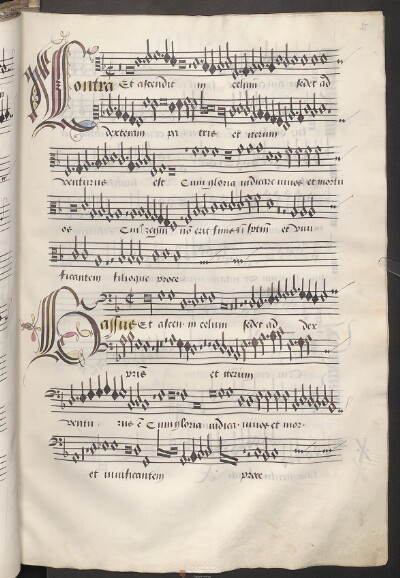 Contra Et ascendit in celum sedet ad
dexteram patris et iterum
venturus est Cum gloria iudicare vivos et mortu
os Cui et in spm et vivi
ficantem filioque proce
Bassus Et ascen in celum sedet ad dex
pris et iterum
ventu rus e Cum gloria iudica vivos et mor
et vivificantem proce